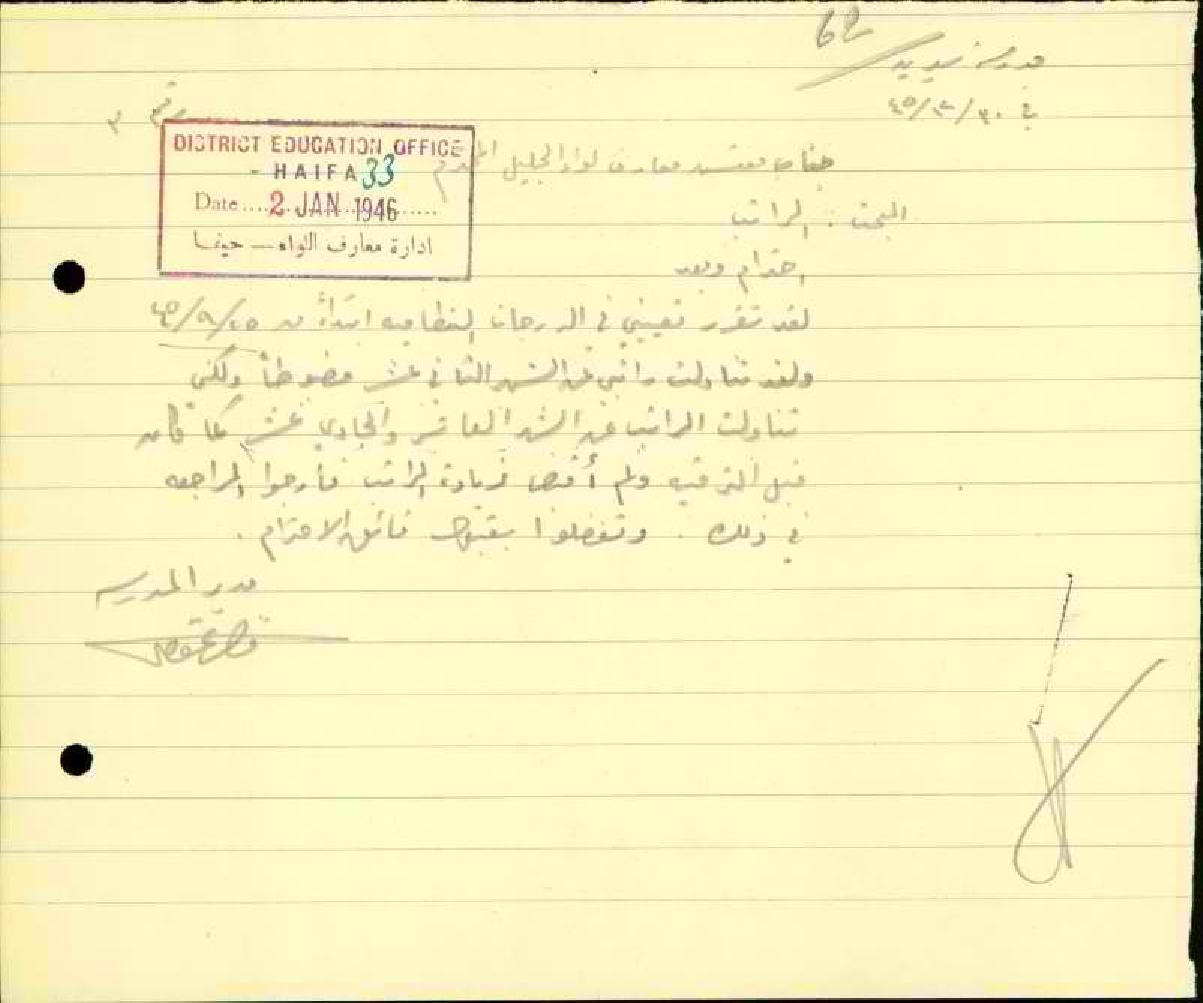 62
مدرسة
في ٣٠/١٢/٤٥
رقم ٣
DISTRICT EDUCATION OFFICE
- HAIFA 33
Date....2 JAN 1946......
ادارة معارف اللواء — حيفا
جناب مفتش معارف لواء الجليل المحترم
المبحث : الراتب
احترام وبعد
لقد تقرر تعييني في الدرجات النظاميه ابتداءً من ٤٥/٩/٢٥
ولقد تناولت راتبي عن الشهر الثاني عشر مضبوطاً ولكني
تناولت الراتب عن الشهر العاشر والحادي عشر كما كان
قبل الترقيه ولم أقبض زيادة الراتب فأرجوا المراجعه
في ذلك . وتفضلوا بقبول فائق الاحترام .
مدير المدرسه